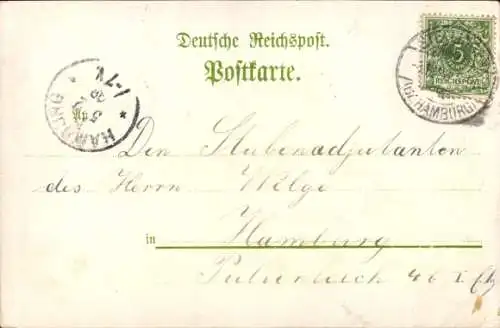 Deutsche Reichspost.
Postkarte.
5
HAMBURG
HAMBURG
5
1-7N
An
Den Stubenadjutanten
des Herrn Welge
in Hamburg
Pulverteich 46 I. Etg